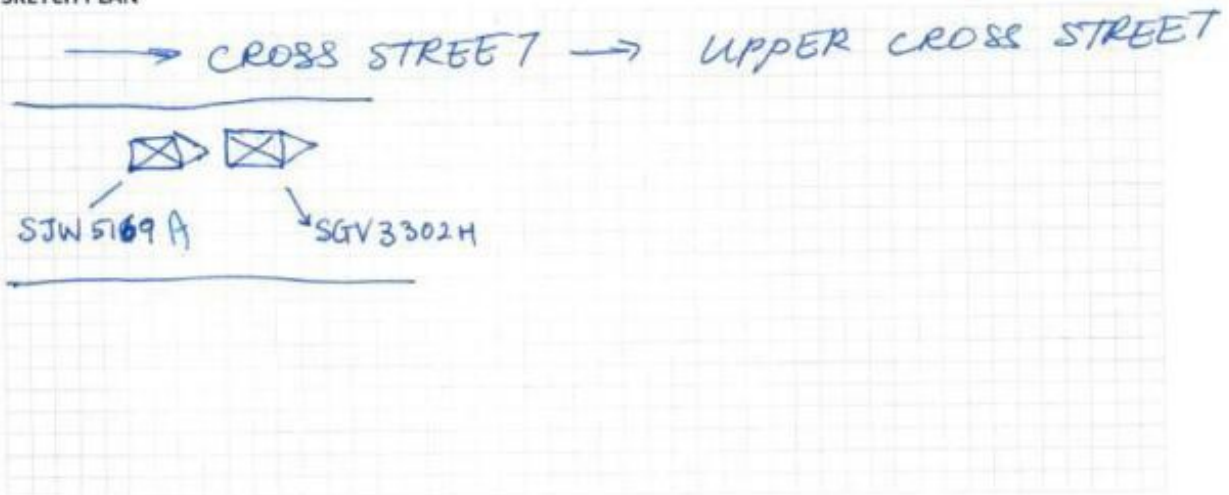 SKETCH PLAN
→ CROSS STREET → UPPER CROSS STREET
SJW5169A
SGV3302H